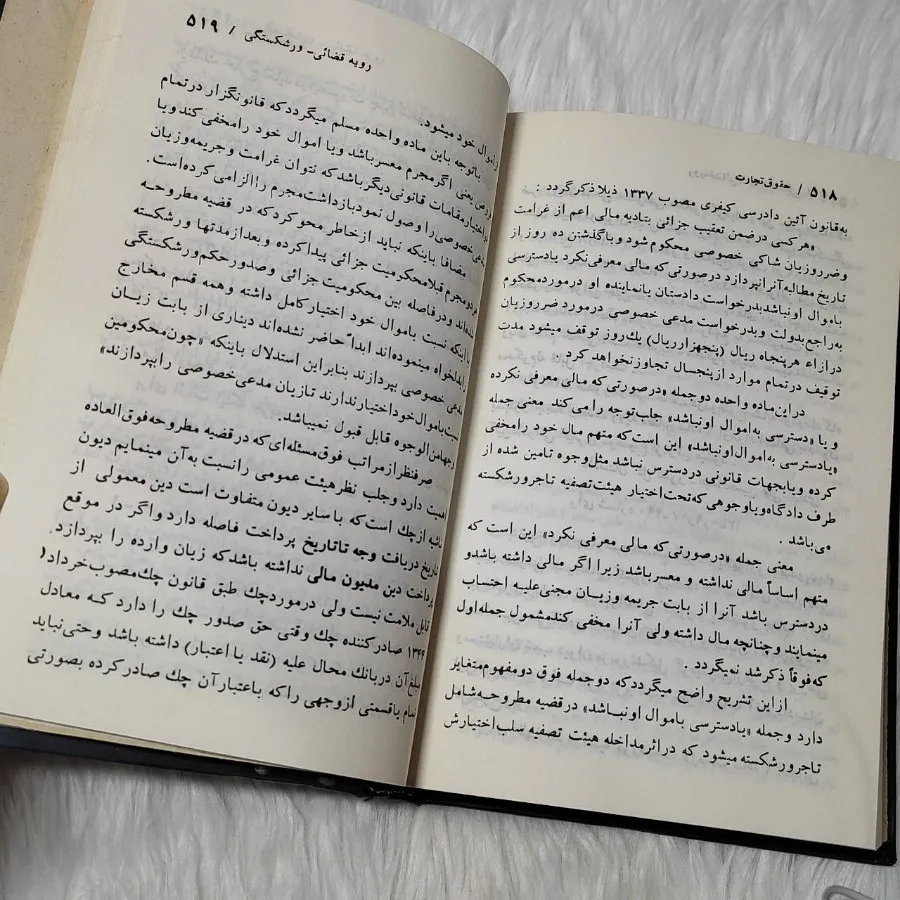 ۵۱۸ / حقوق تجارت
به قانون آئین دادرسی کیفری مصوب ۱۳۳۷ ذیلا ذکر گردد :
«هرکسی در ضمن تعقیب جزائی بتادیه مالی اعم از غرامت
وضرر وزیان شاکی خصوصی محکوم شود و باگذشتن ده روز از
تاریخ مطالبه آنرا نپردازد درصورتی‌که مالی معرفی نکرد یادسترسی
به‌اموال او نباشد بدرخواست دادستان یانماینده او درمورد محکوم
به راجع بدولت و بدرخواست مدعی خصوصی درمورد ضرر وزیان
درازاء هر پنجاه ریال (پنجهزارریال) یك‌روز توقیف میشود مدت
توقیف درتمام موارد از پنجسال تجاوز نخواهد کرد .
در این ماده واحده دو جمله «درصورتی که مالی معرفی نکرده
و یا «دسترسی به اموال او نباشد» جلب توجه را می‌کند معنی جمله
«یا دسترسی به‌اموال او نباشد» این است که متهم مال خود را مخفی
کرده ویابجهات قانونی دردسترس نباشد مثل وجوه تامین شده از
طرف دادگاه ویا وجوهی که تحت اختیار هیئت تصفیه تاجر ورشکسته
می‌باشد .
معنی جمله «درصورتی که مالی معرفی نکرد» این است که
متهم اساساً مالی نداشته و معسر باشد زیرا اگر مالی داشته باشد و
در دسترس باشد آنرا از بابت جریمه وزیان مجنی علیه احتساب
مینمایند و چنانچه مال داشته ولی آنرا مخفی کند مشمول جمله اول
که فوقاً ذکر شد نمیگردد .
از این تشریح واضح میگردد که دوجمله فوق دو مفهوم متغایر
دارد وجمله «یا دسترسی باموال او نباشد» در قضیه مطروحه شامل
تاجر ورشکسته میشود که در اثر مداخله هیئت تصفیه سلب اختیارش
رویه قضائی - ورشکستگی / ۵۱۹
از اموال خود میشود.
باتوجه باین ماده واحده مسلم میگردد که قانونگزار در تمام
فروض یعنی اگر مجرم معسر باشد ویا اموال خود را مخفی کند و یا
در اختیار مقامات قانونی دیگر باشد که نتوان غرامت و جریمه وزیان
مدعی خصوصی را وصول نمود بازداشت مجرم را الزامی کرده است.
مضافا باینکه نباید از خاطر محو کرد که در قضیه مطروحه
دو مجرم قبلا محکومیت جزائی پیدا کرده و بعد از مدتها ورشکسته
شده‌اند و در فاصله بین محکومیت جزائی وصدور حکم ورشکستگی
با اینکه نسبت باموال خود اختیار کامل داشته وهمه قسم مخارج
دلخواه مینموده‌اند ابداً حاضر نشده‌اند دیناری از بابت زیان
مدعی خصوصی بپردازند بنابراین استدلال باینکه «چون محکومین
نسبت باموال خود اختیار ندارند تا زیان مدعی خصوصی را بپردازند»
بوجه من الوجوه قابل قبول نمیباشد.
صرفنظر از مراتب فوق مسئله‌ای که در قضیه مطروحه فوق‌العاده
اهمیت دارد و جلب نظر هیئت عمومی را نسبت به آن مینمایم دیون
ناشیه از چك است که با سایر دیون متفاوت است دین معمولی از
تاریخ دریافت وجه تا تاریخ پرداخت فاصله دارد و اگر در موقع
پرداخت دین مدیون مالی نداشته باشد که زیان وارده را بپردازد
قابل ملامت نیست ولی درمورد چك طبق قانون چك مصوب خرداد
۱۳۴۴ صادر کننده چك وقتی حق صدور چك را دارد که معادل
مبلغ آن در بانك محال علیه (نقد یا اعتبار) داشته باشد و حتی نباید
تمام یا قسمتی از وجهی را که باعتبار آن چك صادر کرده بصورتی